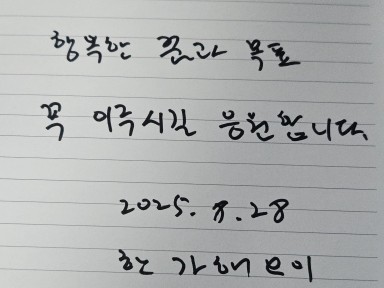 행복한 꿈과 목표
꼭 이루시길 응원합니다.
2025. 8. 28